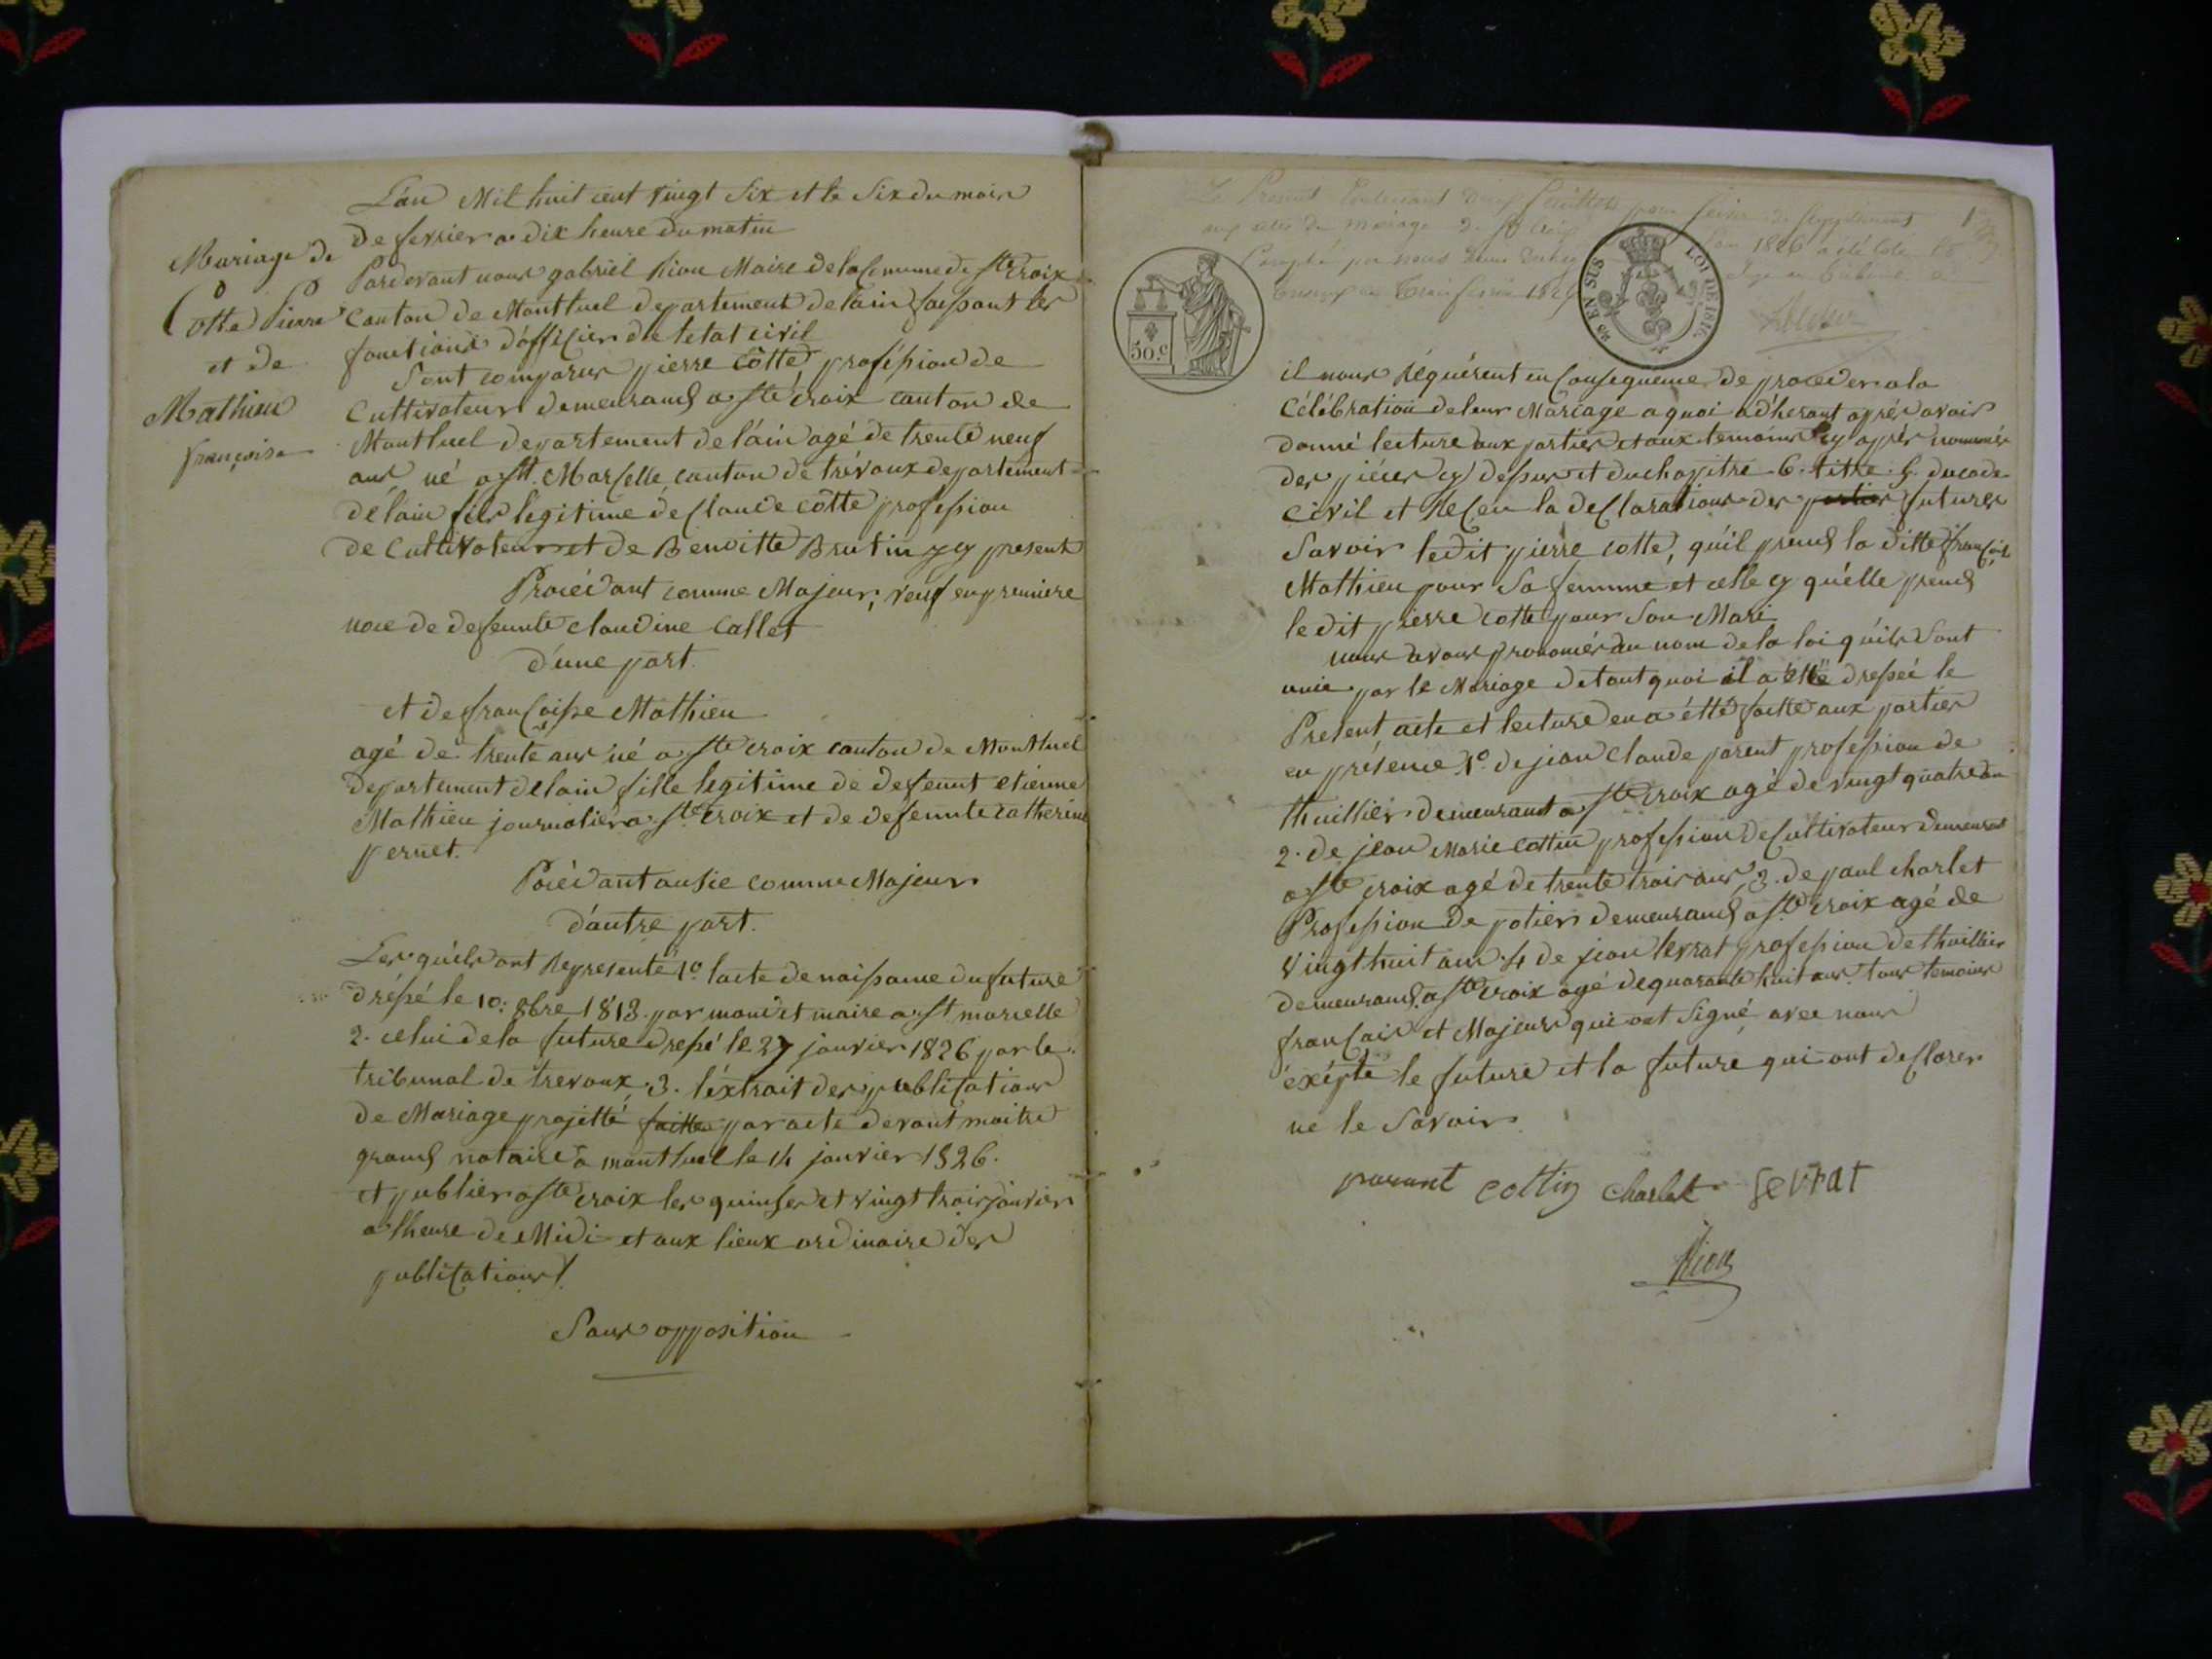 L'an Mil huit cent vingt Six et le Six du mois
de fevrier a dix heure du matin
Mariage de
Cotte Pierre
et de
Mathieu
françoise
Pardevant nous gabriel Maire de la Commune de Ste Croix
Canton de Montluel departement de lain faisant les
fonctions d'officier de letat civil
Sont comparus pierre Côtte, proféssion de
Cultivateur demeurand a Ste Croix canton de
Montluel departement de l'ain agé de trente neuf
ans né a St. Marcelle canton de trévoux departement
de lain fils legitime de Claude côtte profession
de Cultivateur et de Benoitte Brutin present
Procédant comme Majeur, veuf en premiere
noce de defeunte claudine Callet
d'une part.
et de francoisse Mathieu
agé de trente ans né a Ste croix canton de Montluel
departement de lain fille legitime de defeunt etienne
Mathieu journalier a Ste Croix et de defeunte catherine
pernet.
Pocédant ausie comme Majeur
d'autre part.
Les quéls ont Representé 1o. lacte de naissance du future
dréssé le 10. 8bre 1813. par maire a St marcelle
2. celui de la future dressé le 27 janvier 1826 par le
tribunal de trevoux, 3. l'éxtrait des publications
de Mariage projetté faitte par acte devant maitre
grand notaire a montluel le 14 janvier 1826.
et publier a Ste croix les quinse et vingt trois janvier
a lheure de Midi et aux lieux ordinaire des
publications
Sans opposition
Le Présent
50.c
EN SUS
LOI DE 1816.
il nous Réquérent en Consequence de proceder a la
Célébration de leur Mariage a quoi adhérant aprés avoir
donné lecture aux parties et aux temoins cy aprés nommés
des piéces cy dessus et du chapitre 6. titre 5. du code
civil et Receu la declarations des parties futures
Savoir ledit pierre cotte, qu'il prend la ditte françoise
Mathieu pour Sa femme et celle cy qu'elle prend
le dit pierre cotte pour Son Mari
nous avons prononcés au nom de la loi qu'ils Sont
unie par le Mariage de tout quoi il a étté dresseé le
Présent acte et lecture en a étté faitte aux parties
en présence 1o. de jean Claude parent profession de
thuillier demeurant a Ste croix agé de vingt quatre an
2. de jean Marie cottin profession de Cultivateur demeurant
a Ste croix agé de trente trois ans, 3. de paul charlet
Profession de potier demeurand a Ste croix agé de
vingt huit ans. 4 de jean levrat profession de thuillier
demeurand a Ste croix agé de quarante huit ans. tous temoins
français et Majeurs qui ont Signé avec nous
éxépté le future et la future qui ont declarer
ne le Savoir
parant cottin charlet levrat